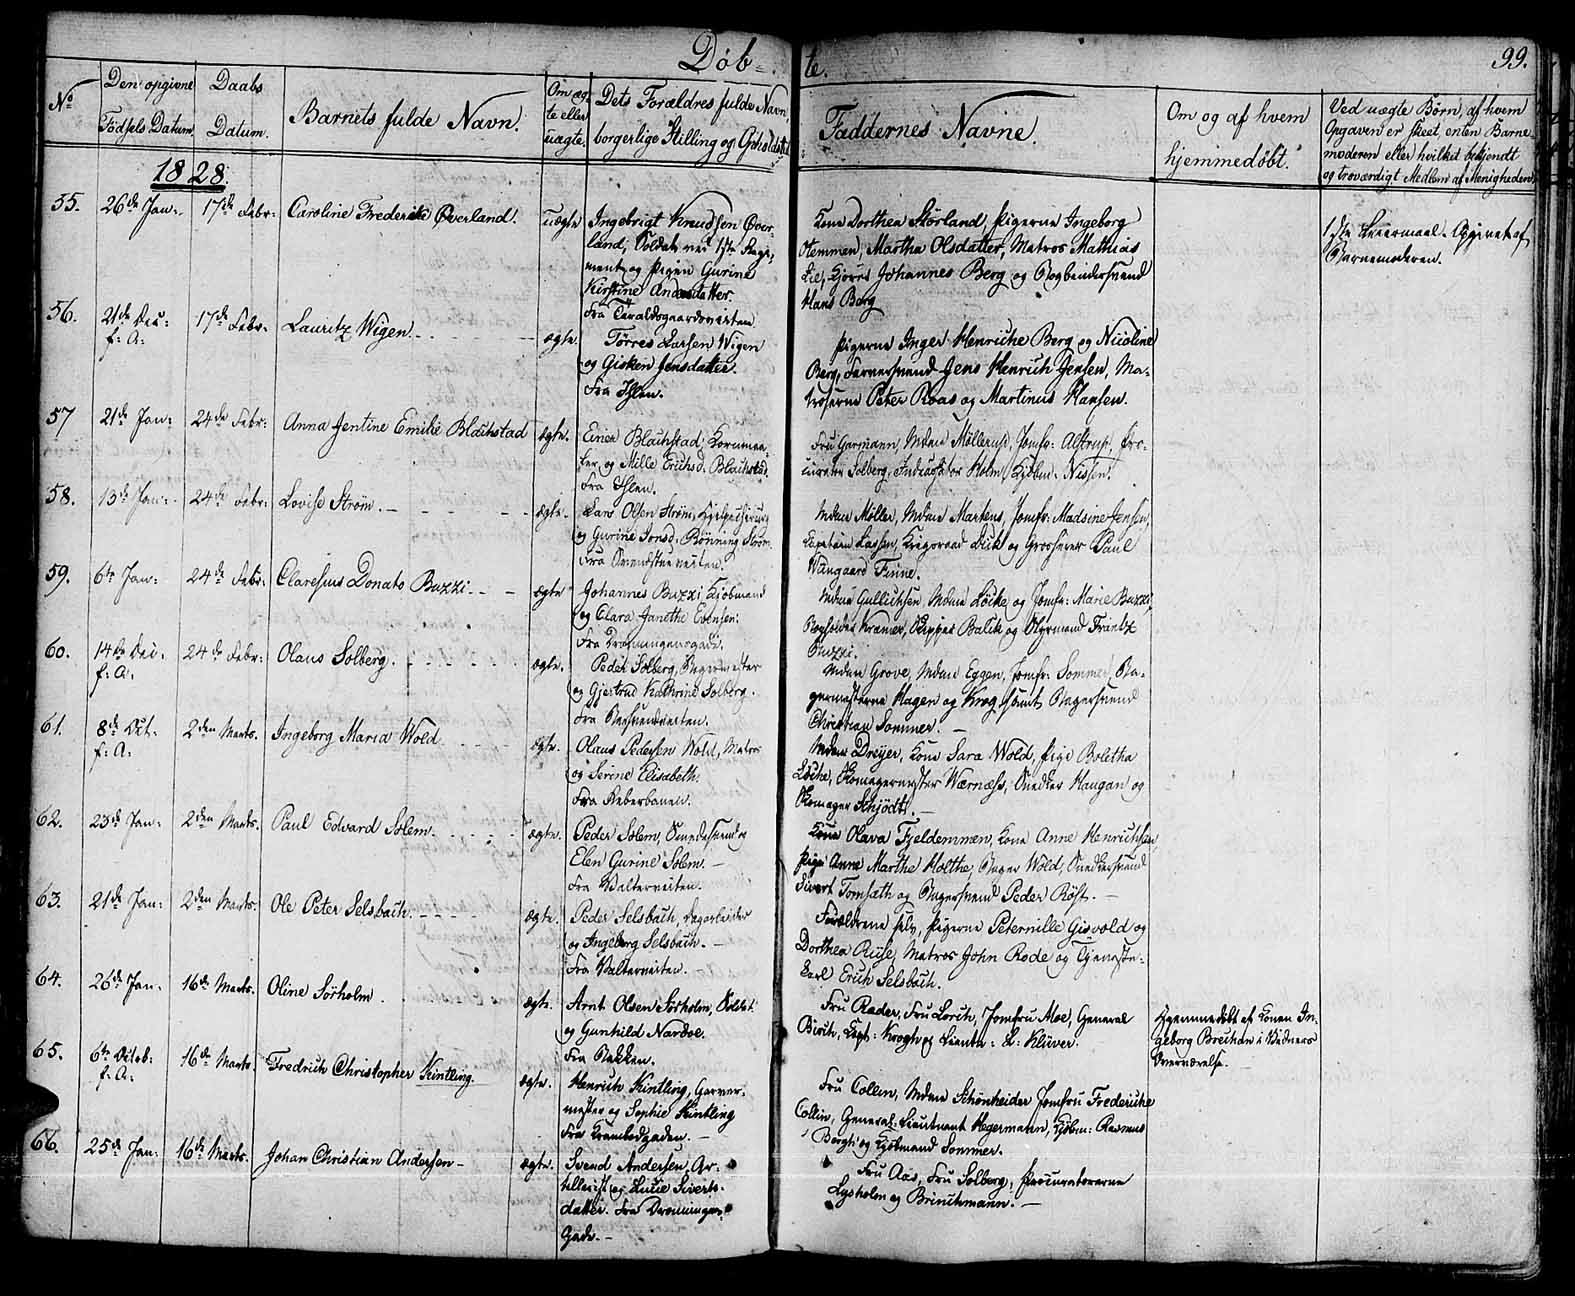 Døbte.
99.
No
Den opgivne Födsels Datum.
Daabs Datum.
Barnets fulde Navn.
Om ægte eller uægte.
Dets Forældres fulde Navn, borgerlige Stilling og Opholdsted
Faddernes Navne.
Om og af hvem hjemmedøbt.
Ved uægte Børn, af hvem
Opgaven er skeet, enten Barne-
moderen eller hvilket bekjendt
og troværdigt Medlem af Menigheden
1828.
55.
26de Jan:
17de Febr:
Caroline Frederike Øverland.
uægte
Ingebrigt Knudsen Øver-
land, Soldat ved 1ste Regi-
ment og Pigen Gurine
Kirstine Andersdatter.
Kone Dorthea Størland, Pigerne Ingeborg
Hemmen, Martha Olsdatter, Matros Mathias
Lie, Johannes Berg og Bogbindersvend
Hans Berg
1ste Leiermaal. Opgivet af
Barnemoderen.
56.
21de Dec:
f: A:
17de Febr:
Lauritz Wigen.
ægte.
Törres Larsen Wigen
og Gisken Jensdatter.
Fra Ihlen.
Pigerne Inger Henriche Berg og Nicoline
Berg, Farversvend Jens Henrich Jensen, Ma-
troserne Peter Roas og Martinus Hansen.
57
21de Jan:
24de Febr:
Anna Jentine Emilie Blachstad
ægte.
Einer Blachstad, Kornmaa-
ler og Mille Erichsd. Blachstad.
Fra Ihlen.
Fru Garmann, Mdme Möllerup, Jomfr: Alstrup, Pro-
curator Solberg, Holm, Kjöbm: Nissen.
58.
13de Jan:
24de Febr:
Lovise Ström.
ægte.
Lars Olsen Ström,
og Gurine Jonsd: Rönning Ström.
Mdme Möller, Mdme Martens, Jomfr: Madsine Jensen,
Capitain Lassen, Krigsraad Buk og Grosserer Paul
Wangaard Finne.
59.
6te Jan:
24de Febr:
Claresius Donato Buzzi
ægte
Johannes Buzzi, Kiöbmand
og Clara Janetha Evensen.
Fra Dronningensgade.
Mdme Gullichsen, Mdme Löche og Jomfr: Marie Buzzi,
Kræmer, Skipper Balik og Styrmand Frantz
Buzzi.
60.
14de Dec:
f: A:
24de Febr:
Olaus Solberg.
ægte.
Peder Solberg, Bagermester
og Gjertrud Kathrine Solberg.
Mdme Grove, Mdme Eggen, Jomfr: Sommer, Ba-
germesterne Hagen og Krog samt Bagersvend
Christian Sommer.
61.
8de Oct.
f: A:
2den Marts.
Ingeborg Maria Wold
ægte.
Olaus Pedersen Wold, Matros
og Serine Elisabeth.
Fra Reberbanen.
Mdme Dreyer, Kone Sara Wold, Pige Bolitha
Löche, Skomagermester Wærnæss, Snedker Haugan og
Skomager Schjödt.
62.
23de Jan:
2den Marts.
Paul Edvard Solem.
ægte.
Peder Solem, Smedesvend og
Elen Gurine Solem.
Kone Olava Fjeldemmen, Kone Anne Henrichsen
Pige Anne Marthe Holthe, Bager Wold, Snedkersvend
Sivert Tomsæth og Bagersvend Peder Röst.
63.
21de Jan:
2den Marts.
Ole Peter Selsbach.
ægte.
Peder Selsbach, Dagarbeider
og Ingeborg Selsbach.
Forældrene selv, Pigerne Peternille Gisvold og
Dorthea Riise, Matros John Rode og Tjeneste-
karl Erich Selsbach.
64.
26de Jan:
16de Marts.
Oline Sörholm.
ægte.
Arnt Olsen Sörholm, Soldat
og Gunhild Nardoe.
Fra Bakken.
Fru Rader, Fru Lorch, Jomfru Moe, General
Birch, Capt: Krogh og Lieutn: L: Klüver.
Hjemmedöbt af Konen In-
geborg Brechan i Vidners
Overværelse.
65.
6te Octob:
f: A:
16de Marts.
Fredrich Christopher Kintling.
ægte.
Henrich Kintling, Garver-
mester og Sophie Kintling
Fra Krambodgaden.
Fru Collin, Mdme Schönheider, Jomfru Frederiche
Collin, General-Lieutnant Hegermann, Kjöbm: Rasmus
Bergh og Kjöbmand Sommer.
66.
25de Jan:
16de Marts.
Johan Christian Andersen
ægte.
Svend Andersen, Ar-
tillerist og Lucie Siverts-
datter. Fra Dronningens
Gade.
Fru Aas, Fru Solberg, Procuratorerne
Lysholm og Brinchmann.